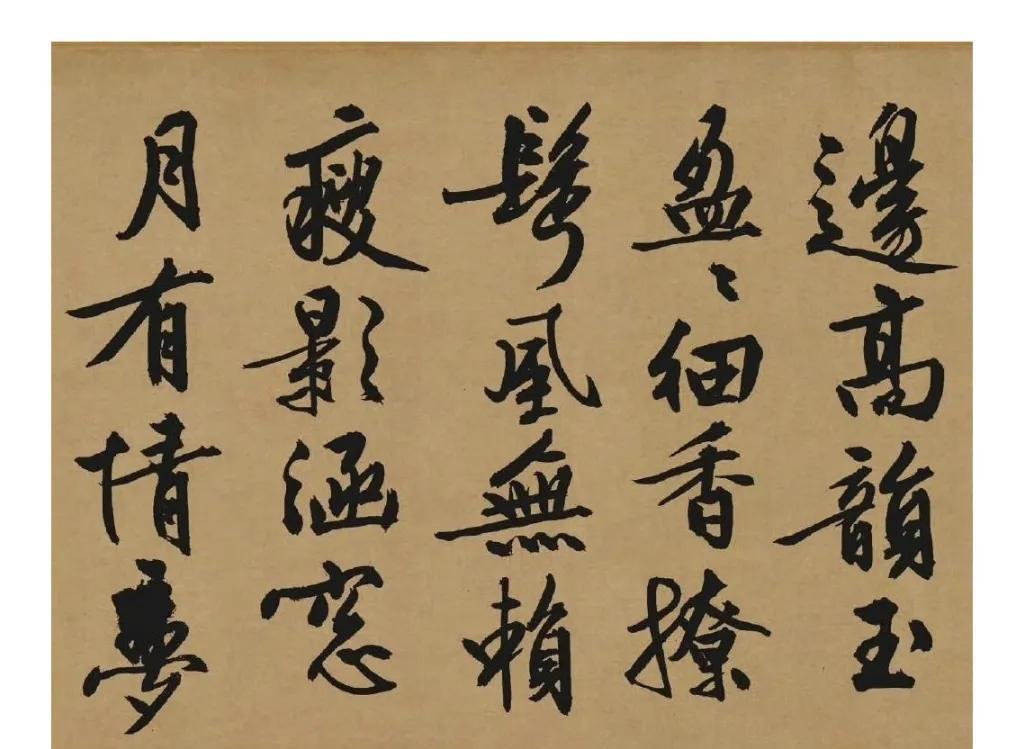 邊高韻玉
盈〻細香撩
鬢風無賴
瘦影涵窓
月有情夢